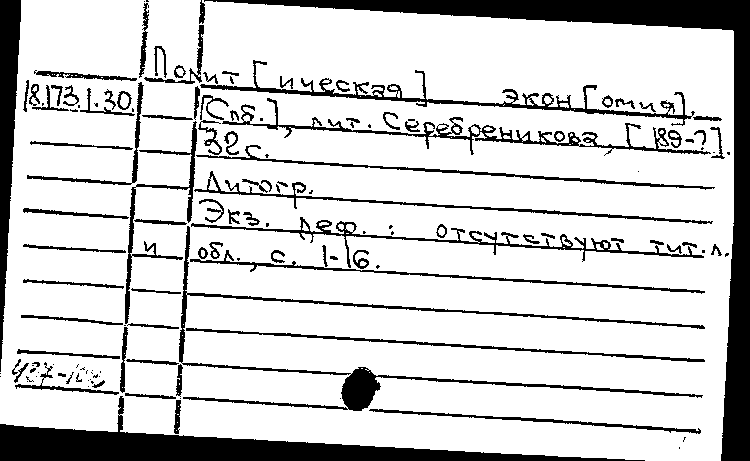 Полит[ическая] экон[омия].
18.173.1.30
[Спб.], лит. Серебреникова, [189-?].
32 с.
Литогр.
Экз. деф.: отсутствуют тит.л.
и обл., с. 1-16.